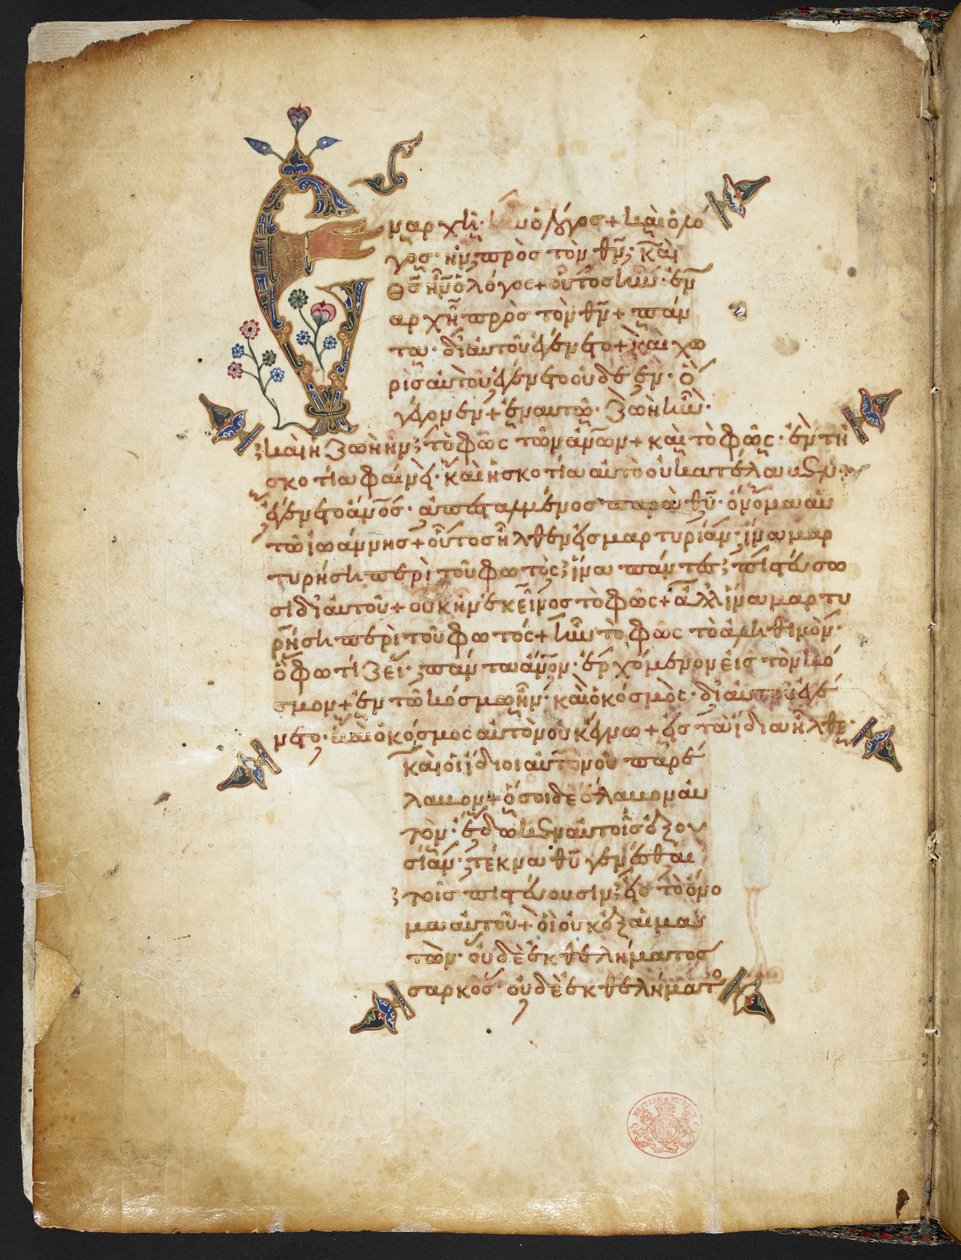 Ἐν ἀρχῇ ἦν ὁ λόγος + καὶ ὁ λό
γος ἦν πρὸς τὸν θν· καὶ
θς ἦν ὁ λόγος + οὗτος ἦν ἐν
ἀρχῇ πρὸς τὸν θν + πάν
τα δι αὐτοῦ ἐγένετο + καὶ χω
ρὶς αὐτοῦ ἐγένετο οὐδὲ ἕν· ὃ
γέγονεν + ἐν αὐτῷ ζωὴ ἦν·
καὶ ἡ ζωὴ ἦν τὸ φῶς τῶν ανων + καὶ τὸ φῶς· ἐν τῇ
σκοτία φαίνει· καὶ ἡ σκοτία αὐτὸ οὐ κατέλαβεν·
ἐγένετο ανος· ἀπεσταλμένος παρὰ θυ· ὄνομα αὐ
τῷ ἰωάννης + οὗτος ἦλθεν εἰς μαρτυρίαν· ἵνα μαρ
τυρήσῃ περὶ τοῦ φωτός· ἵνα πάντες πιστεύσω
σι δι αὐτοῦ + οὐκ ἦν ἐκεῖνος τὸ φῶς + ἀλλ ἵνα μαρτυ
ρήσῃ περὶ τοῦ φωτός + ἦν τὸ φῶς τὸ ἀληθινόν·
ὃ φωτίζει· πάντα ανον· ἐρχόμενον εἰς τὸν κό
σμον + ἐν τῷ κόσμῳ ἦν· καὶ ὁ κόσμος· δι αὐτοῦ ἐγέ
νετο· καὶ ὁ κόσμος αὐτὸν οὐκ ἔγνω + εἰς τὰ ἴδια ἦλθε·
καὶ οἱ ἴδιοι αὐτὸν οὐ παρέ
λαβον + ὅσοι δὲ ἔλαβον αὐ
τὸν· ἔδωκεν αὐτοῖς ἐξου
σίαν· τέκνα θυ γενέσθαι
τοῖς πιστεύουσιν εἰς τὸ ὄνο
μα αὐτοῦ + οἳ οὐκ ἐξ αἱμά
των· οὐδὲ ἐκ θελήματος
σαρκός· οὐδὲ ἐκ θελήματο